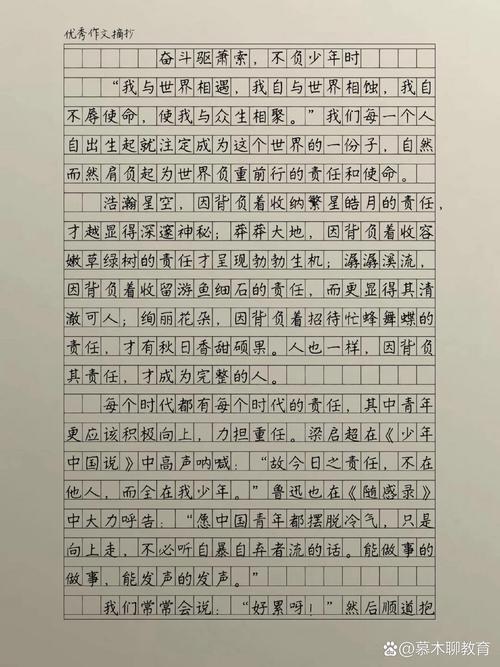 优秀作文摘抄
奋斗驱萧索，不负少年时
“我与世界相遇，我自与世界相蚀，我自
不辱使命，使我与众生相聚。”我们每一个人
自出生起就注定成为这个世界的一份子，自然
而然肩负起为世界负重前行的责任和使命。
浩瀚星空，因背负着收纳繁星皓月的责任，
才越显得深邃神秘；莽莽大地，因背负着收容
嫩草绿树的责任才呈现勃勃生机；潺潺溪流，
因背负着收留游鱼细石的责任，而更显得其清
澈可人；绚丽花朵，因背负着招待忙蜂舞蝶的
责任，才有秋日香甜硕果。人也一样，因背负
其责任，才成为完整的人。
每个时代都有每个时代的责任，其中青年
更应该积极向上，力担重任。梁启超在《少年
中国说》中高声呐喊：“故今日之责任，不在
他人，而全在我少年。”鲁迅也在《随感录》
中大力呼告：“愿中国青年都摆脱冷气，只是
向上走，不必听自暴自弃者流的话。能做事的
做事，能发声的发声。”
我们常常会说：“好累呀！”然后顺道抱
慕木聊教育